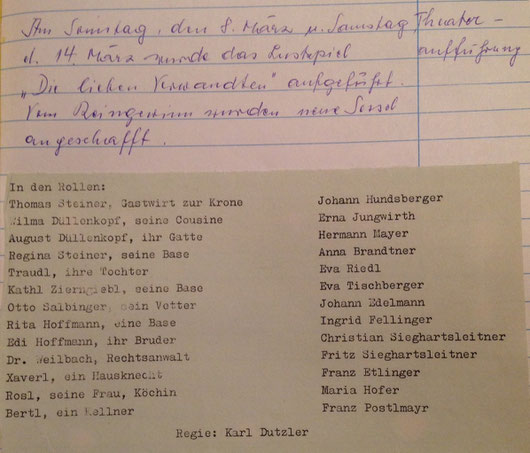 Am Sonntag, den 8. März u. Samstag,
d. 14. März wurde das Lustspiel
„Die lieben Verwandten" aufgeführt.
Vom Reingewinn wurden neue Sessel
angeschafft.
Theater-
aufführung
In den Rollen:
Thomas Steiner, Gastwirt zur Krone Johann Hundsberger
Wilma Düllenkopf, seine Cousine Erna Jungwirth
August Düllenkopf, ihr Gatte Hermann Mayer
Regina Steiner, seine Base Anna Brandtner
Traudl, ihre Tochter Eva Riedl
Kathl Zierngiebl, seine Base Eva Tischberger
Otto Salbinger, sein Vetter Johann Edelmann
Rita Hoffmann, eine Base Ingrid Fellinger
Edi Hoffmann, ihr Bruder Christian Sieghartsleitner
Dr. Weilbach, Rechtsanwalt Fritz Sieghartsleitner
Xaverl, ein Hausknecht Franz Etlinger
Rosl, seine Frau, Köchin Maria Hofer
Bertl, ein Kellner Franz Postlmayr
Regie: Karl Dutzler